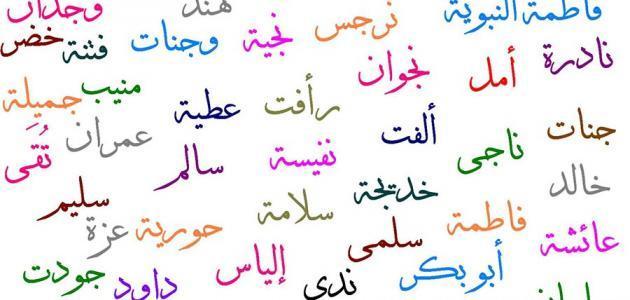 فاطمة النبوية
هند
وجدان
نرجس
نجية
وجنات
فتنة
خضر
نادرة
أمل
نجوان
منيب
جميلة
رأفت
عطية
عمران
تُقَى
جنات
ناجى
ألفت
نفيسة
سالم
سليم
خالد
خديجة
سلامة
حورية
عزة
عائشة
فاطمة
سلمى
أبو بكر
إلياس
ندى
داود
جودت